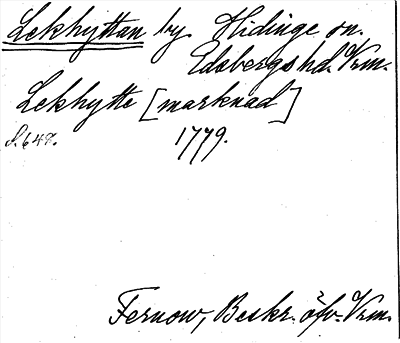 Lekhyttan by Hidinge sn.
Edsbergs hd. Vrm.
Lekhytte [marknad]
S. 647. 1779.
Fernow, Beskr. öfv. Vrm.